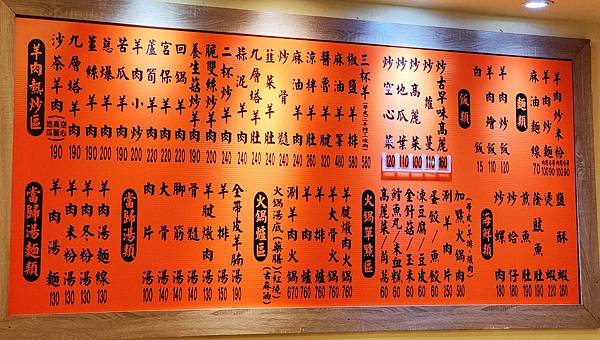 麵類
羊肉炒米粉 100 90
羊肉炒麵 100 90
麻油麵線 70
飯類
羊肉炒飯 120
羊肉燴飯 110
白飯 15
炒古早味高麗 160
炒蔓 110
炒高麗菜 110
炒地瓜葉 100
炒空心菜 120
三杯羊 560
椒鹽羊排 580
麻油羊睪 580
醬爆羊肚 240
涼拌羊肚 240
麻油羊肚 240
炒骨髓 240
韭菜羊 240
九層塔羊肚 240
蒜泥羊 240
二杯炒羊 240
脆雙絲炒羊
養生菇炒羊
回鍋羊
宮保羊 200
蘆筍羊肉 200
苦瓜羊小炒 190
蔥爆羊肉 190
薑絲羊肉 190
九層塔羊肉 190
沙茶羊肉(空心高麗地瓜) 190
羊肉熱炒區
海鮮類
鹽酥蝦 260
燙蝦 220
蔭豉魚肚 190
煎魚肚 190
炒蚵仔 180
炒蛤蜊 180
火鍋單點區
加點火鍋肉(帶皮、羊排、燉肉) 580
涮羊肉片 250
蛋餃/魚餃 60
凍豆腐/豆皮 60
金針菇/玉米 60
鱈魚丸/米血糕 60
高麗菜/茼萵 60
火鍋爐區
羊腱燉肉火鍋 760
羊大骨火鍋 760
羊排火鍋 760
羊肉爐 760
涮羊肉火鍋 670
火鍋湯底(藥膳)(紅燒)(古麻油)
當歸湯類
全帶皮羊腩湯 190
羊排湯 150
羊腱燉肉湯 130
羊骨髓湯 140
腳筋湯 140
大骨湯 140
肉片湯 100
當歸湯麵類
羊肉湯麵線 130
羊肉冬粉湯 130
羊肉米粉湯 130
羊肉湯麵 130